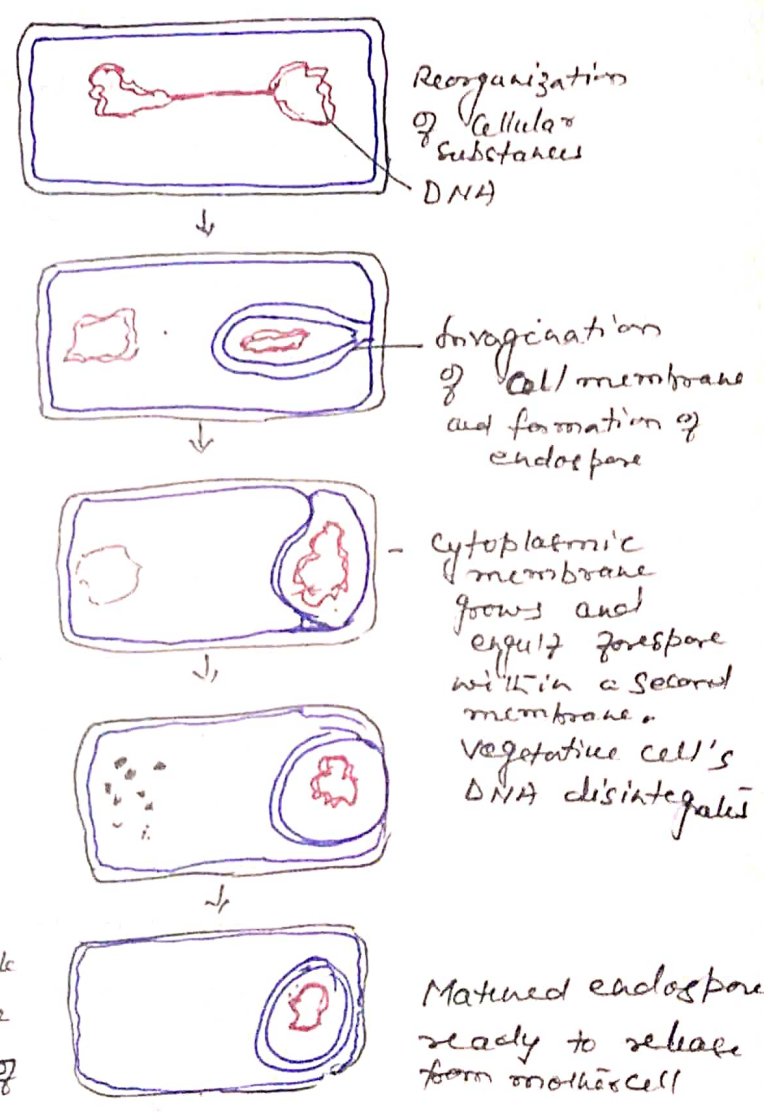 Reorganization
of cellular
substances
DNA
Invagination
of cell membrane
and formation of
endospore
- Cytoplasmic
membrane
grows and
engulf forespore
within a second
membrane.
Vegetative cell's
DNA disintegrates
Matured endospore
ready to release
from mothercell
of